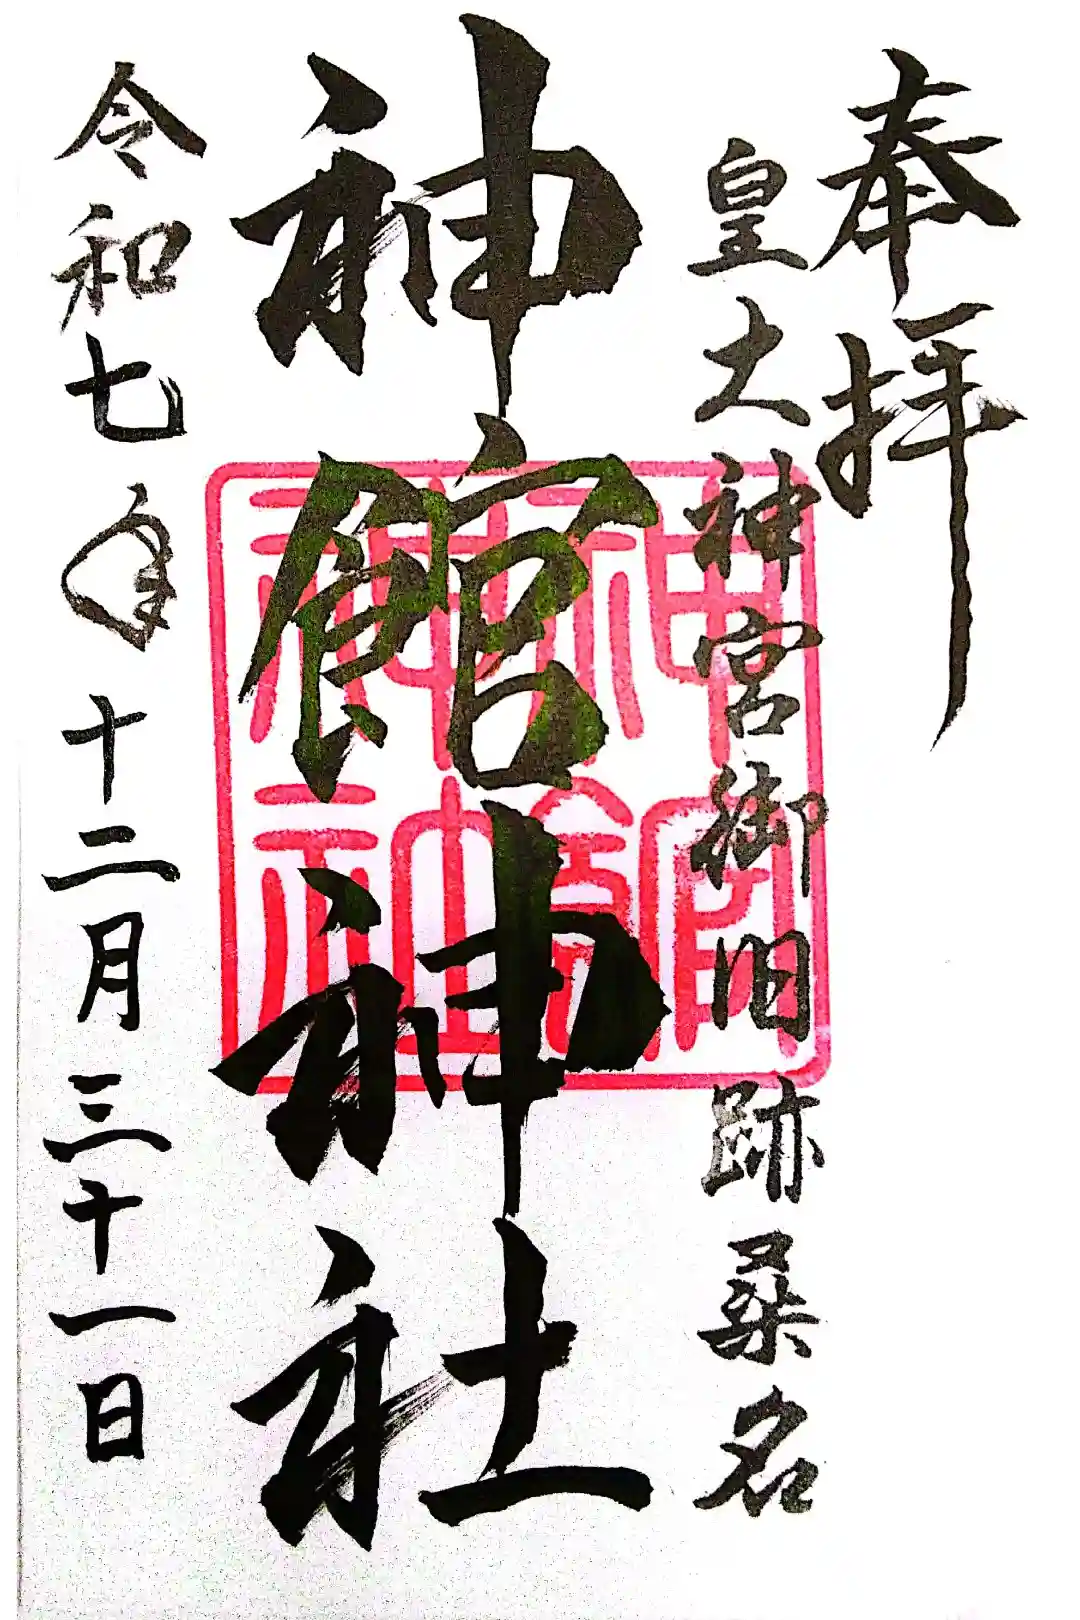 奉拝
皇大神宮御旧跡桑名
神館神社
神館神神社
令和七年十二月三十一日